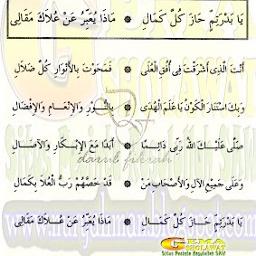 يَا بَدْرَتِمٍّ حَازَ كُلَّ كَمَالِ * مَاذَا يُعَبِّرُ عَنْ عُلَاكَ مَقَالِى
أَنْتَ الَّذِى أَشْرَقْتَ فِى أُفُقِ الْعُلَى * فَمَحَوْتَ بِالْأَنْوَارِ كُلَّ ضَلَالِ
وَبِكَ اسْتَنَارَ الْكَوْنُ يَا عَلَمَ الْهُدَى * بِالنُّوْرِ وَالْإِنْعَامِ وَالْإِفْضَالِ
صَلَّى عَلَيْكَ اللّٰهُ رَبِّى دَائِمًا * أَبَدًا مَعَ الْإِبْكَارِ وَالْآصَالِ
وَعَلَى جَمِيْعِ الْآلِ وَالْأَصْحَابِ مَنْ * قَدْ خَصَّهُمْ رَبُّ الْعُلَا بِكَمَالِ
يَا بَدْرَتِمٍّ حَازَ كُلَّ كَمَالِ * مَاذَا يُعَبِّرُ عَنْ عُلَاكَ مَقَالِى
GEMA
SHOLAWAT